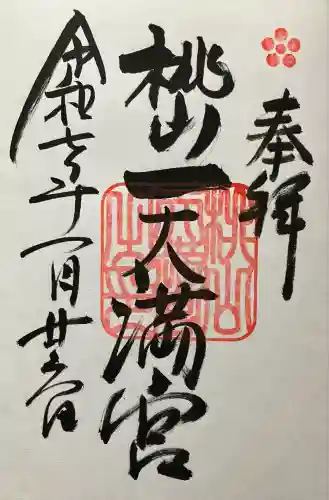 奉拝
桃山天満宮
令和七年一月廿五日